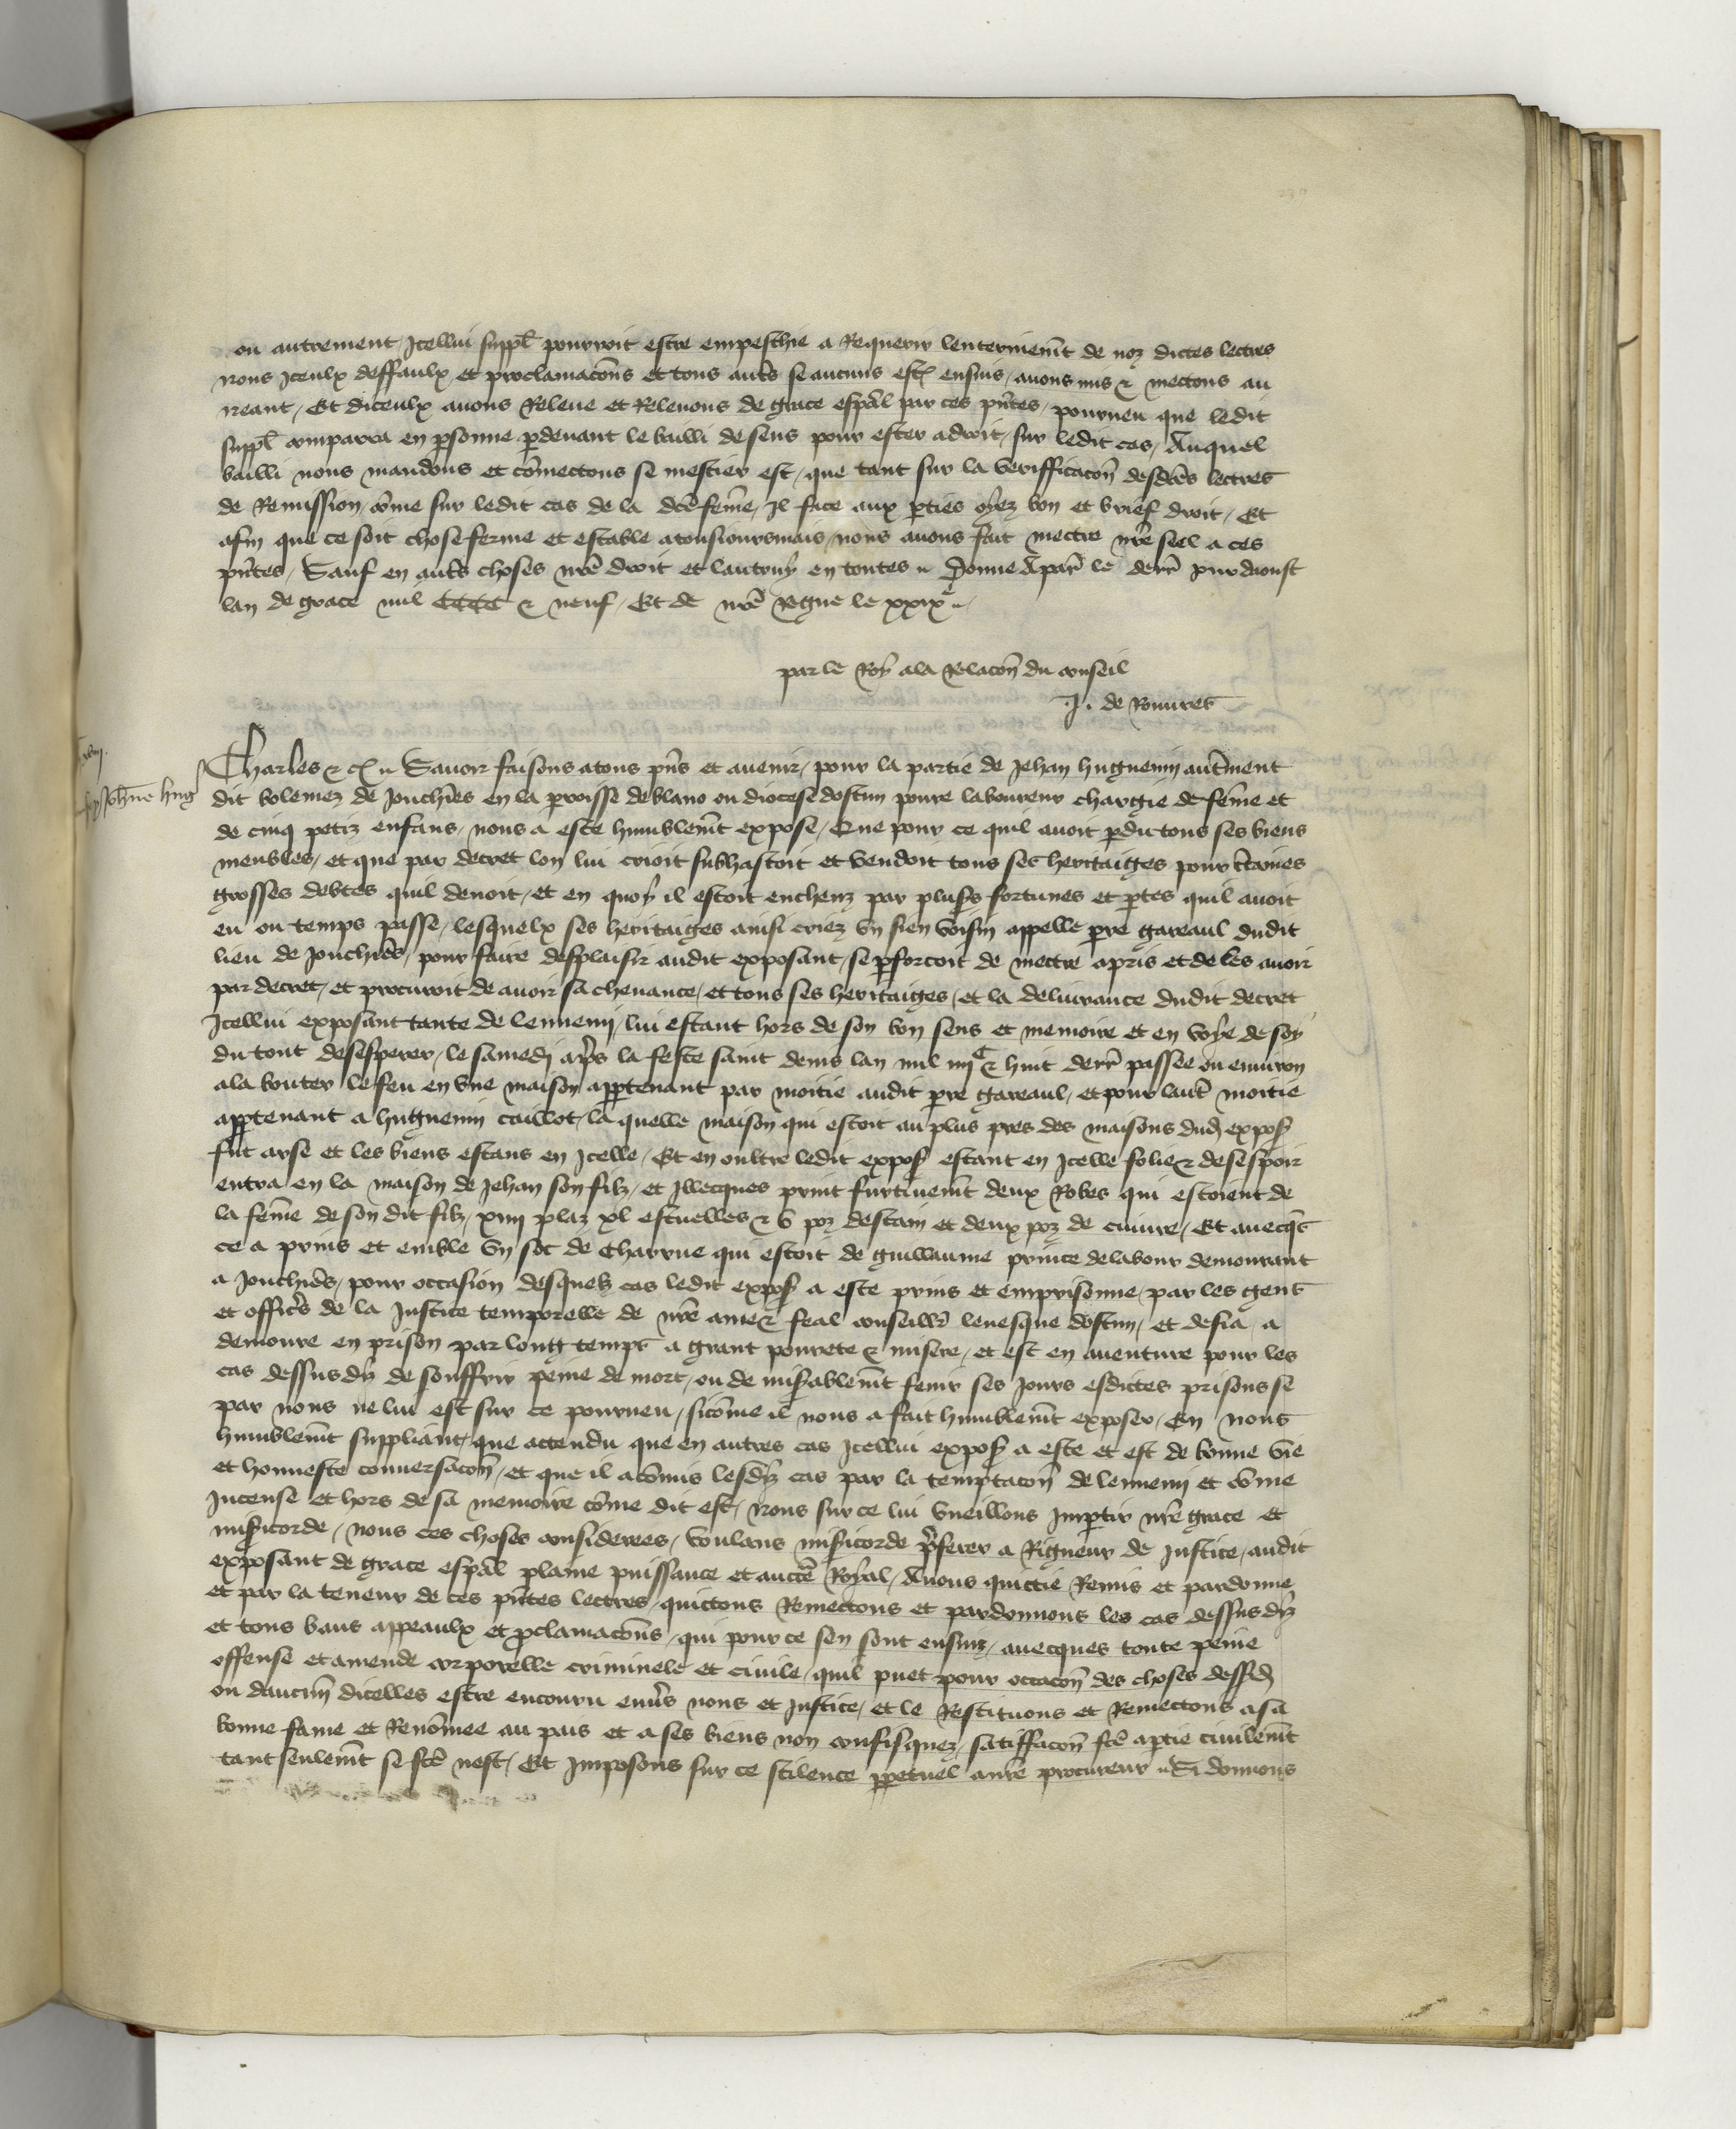 ou autrement / Icellui suppl̃ pourroit estre empeschie a Requerir lenterinem̃t de noz dictes lectres
nous Iceulx deffaulx et proclamacõns et tous aut̃s se aucuns est̃ ensuis / auons mis & mectons au
neant / Et diceulx auons Releue et Releuons de grace esp̃al par ces p̃ntes / pourueu que ledit
suppl̃ comparra en p̱sonne p̱deuant le bailli de sens pour ester adroit / sur ledit cas / Auquel
bailli nous mandons et cõmectons se mestier est / que tant sur la verifficacoñ desdc̃es lectres
de Remission / cõme sur ledit cas de la dc̃e fem̃e / Il face aux p̱ties oyez bon et brief droit / Et
afin que ce soit chose ferme et estable atousioursmais / nous auons fait mectre nr̃e seel a ces
p̃ntes / Sauf en aut̃s choses nr̃e droit et lautruy en toutes // Donne A par̃ le derr̃ Iour daoust
lan de grace mil CCCC & neuf / Et de nr̃e Regne le xxixe //
par le Roy ala Relacoñ du conseil
J. de Rouures
Charles & c̃ // Sauoir faisons atous p̃ns et auenir / pour la partie de Jehan huguenin aut̃ment
dit bolemez de Jonchie͂s en la p̱roisse de blano ou diocese dostun poure laboureur chargie de fem̃e et
de cinq petiz enfans / nous a este humblem̃t expose / Que pour ce quil auoit p̱du tous ses biens
meubles / et que par decret lon lui crioit subhastoit et vendoit tous ses heritaiges pour c̃taines
grosses debtes quil deuoit / et en quoy il estoit encheuz par plus̃s fortunes et p̱tes quil auoit
eu ou temps passe / lesquelx ses heritaiges ainsi criez vn sien voisin appelle p̱re gareaul dudit
lieu de Jonchie͂s / pour faire desplaisir audit exposant / se p̱forcoit de mectre apris et de les auoir
par decret / et procuroit de auoir sa cheuance / et tous ses heritaiges / et la deliurance dudit decret
Icellui exposant tante de lennemj / lui estant hors de son bon sens et memoire et en voye de soy
du tout desesperer / le samedj ap̃s la feste saint denis lan mil iiijC & huit derr̃ passee ou enuiron
ala bouter le feu en vne maison app̱tenant par moitie audit p̱re gareaul / et pour laut̃ moitie
app̱tenant a huguenin caillot / la quelle maison qui estoit au plus pres des maisons dud̃ expos̃
fut arse et les biens estans en Icelle / Et en oultre ledit expos̃ estant en Icelle folie & desespoir
entra en la maison de Jehan son filz / et Illecques print furtiuem̃t deux Robes qui estoient de
la fem̃e de son dit filz / xiiij plaz xl escuelles & v poz destain et deux poz de cuiure / Et auecq̃s
ce a prins et emble vn soc de charrue qui estoit de guillaume prince de labour demourant
a Jonchie͂s / pour occasion desquelz cas ledit expos̃ a este prins et emprisonne / par les gens
et offic̃rs de la Justice temporelle de nr̃e ame & feal conseill̃r leuesque dostun / et desia a
demoure en prison par long temps a grant pourete & misere / et est en auenture pour les
cas dessusdiz de souffrir peine de mort / ou de mis̃ablem̃t fenir ses Jours esdictes prisons se
par nous ne lui est sur ce pourueu / sicõme il nous a fait humblem̃t exposer / En nous
humblem̃t suppliant / que actendu que en autres cas Icellui expos̃ a este et est de bonne vie
et honneste conuersacoñ / et que il a cõmis lesdiz cas par la temptacoñ de lennemj et cõme
Incense et hors de sa memoire cõme dit est / nous sur ce lui vueillons Imp̱tir nr̃e grace et
mis̃icorde / nous ces choses considerees / voulans mis̃icorde p̃ferer a Rigueur de Justice / audit
exposant de grace esp̃al plaine puissance et aucte͂ Royal / Auons quictie Remis et pardonne
et par la teneur de ces p̃ntes lectres / quictons Remectons et pardonnons les cas dessusdiz
et tous bans appeaulx et p̱clamacõns / qui pour ce sen sont ensuiz / auecques toute peine
offense et amende corporelle criminele et ciuile / quil puet pour occacoñ des choses dessd̃
ou daucun dicelles estre encouru enu̾s nous et Justice / et le Restituons et Remectons a sa
bonne fame et Renom̃ee au pais et a ses biens non confisquez / satiffacoñ fc̃e a p̱tie ciuilem̃t
tant seulem̃t se fc̃e nest / Et Imposons sur ce scilence p̱petuel a nr̃e procureur // Si donnons